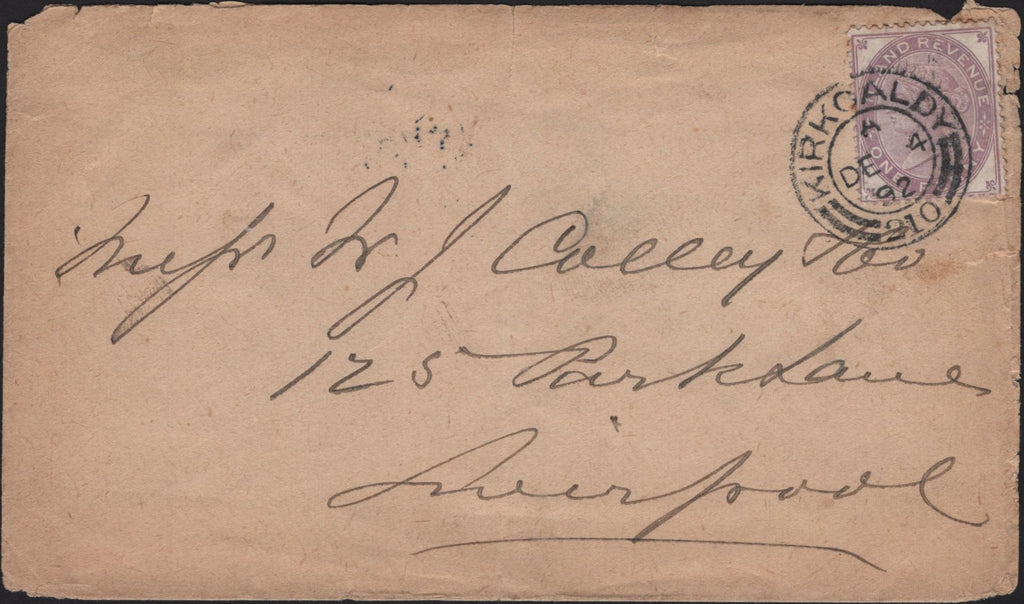 INLAND REVENUE
ONE PENNY
KIRKCALDY
A
4
DE
92
210
Messrs W J Colley & Co
125 Park Lane
Liverpool